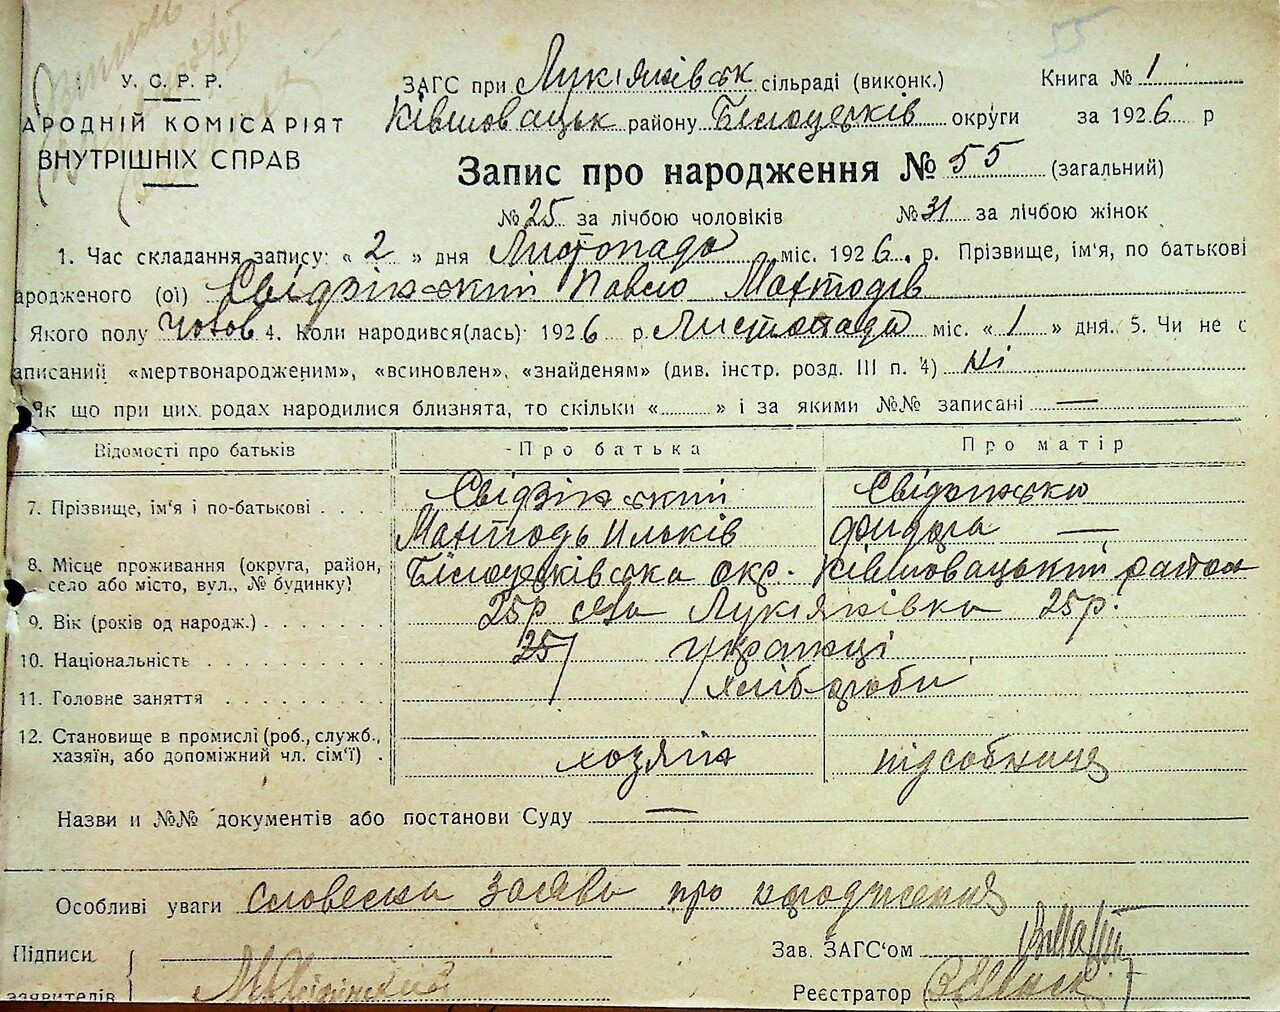 55
У.С.Р.Р.
АРОДНІЙ КОМІСАРІЯТ
ВНУТРІШНІХ СПРАВ
ЗАГС при Лукіянівськ сільраді (виконк.) Книга № 1
Ківшовацьк району Білоцерків округи за 1926 р
Запис про народження № 55 (загальний)
№ 25 за лічбою чоловіків № 31 за лічбою жінок
1. Час складання запису: « 2 » дня Листопада міс. 1926. р. Прізвище, ім'я, по батькові
ародженого (ої) Свідзінський Павло
Якого полу Чолов 4. Коли народився(лась) 1926 р. Листопада міс. « 1 » дня. 5. Чи не є
аписаний «мертвонародженим», «всиновлен», «знайденям» (див. інстр. розд. III п. 4) Ні
Як що при цих родах народилися близнята, то скільки « » і за якими №№ записані —
Відомості про батьків Про батька Про матір
7. Прізвище, ім'я і по-батькові Свідзінський Свідзинська
Ильків —
8. Місце проживання (округа, район, село або місто, вул., № будинку) Білоцерківська окр. Ківшовацький район
9. Вік (років од народж.) 25р село Лукіянівка 25р.
10. Національність 25 Українці
11. Головне заняття хлібороби
12. Становище в промислі (роб., служб., хазяїн, або допоміжний чл. сім'ї) хозяїн підсобниця
Назви и №№ документів або постанови Суду —
Особливі уваги словесна заява про народження
Підписи Зав. ЗАГС'ом
заявителів Реєстратор